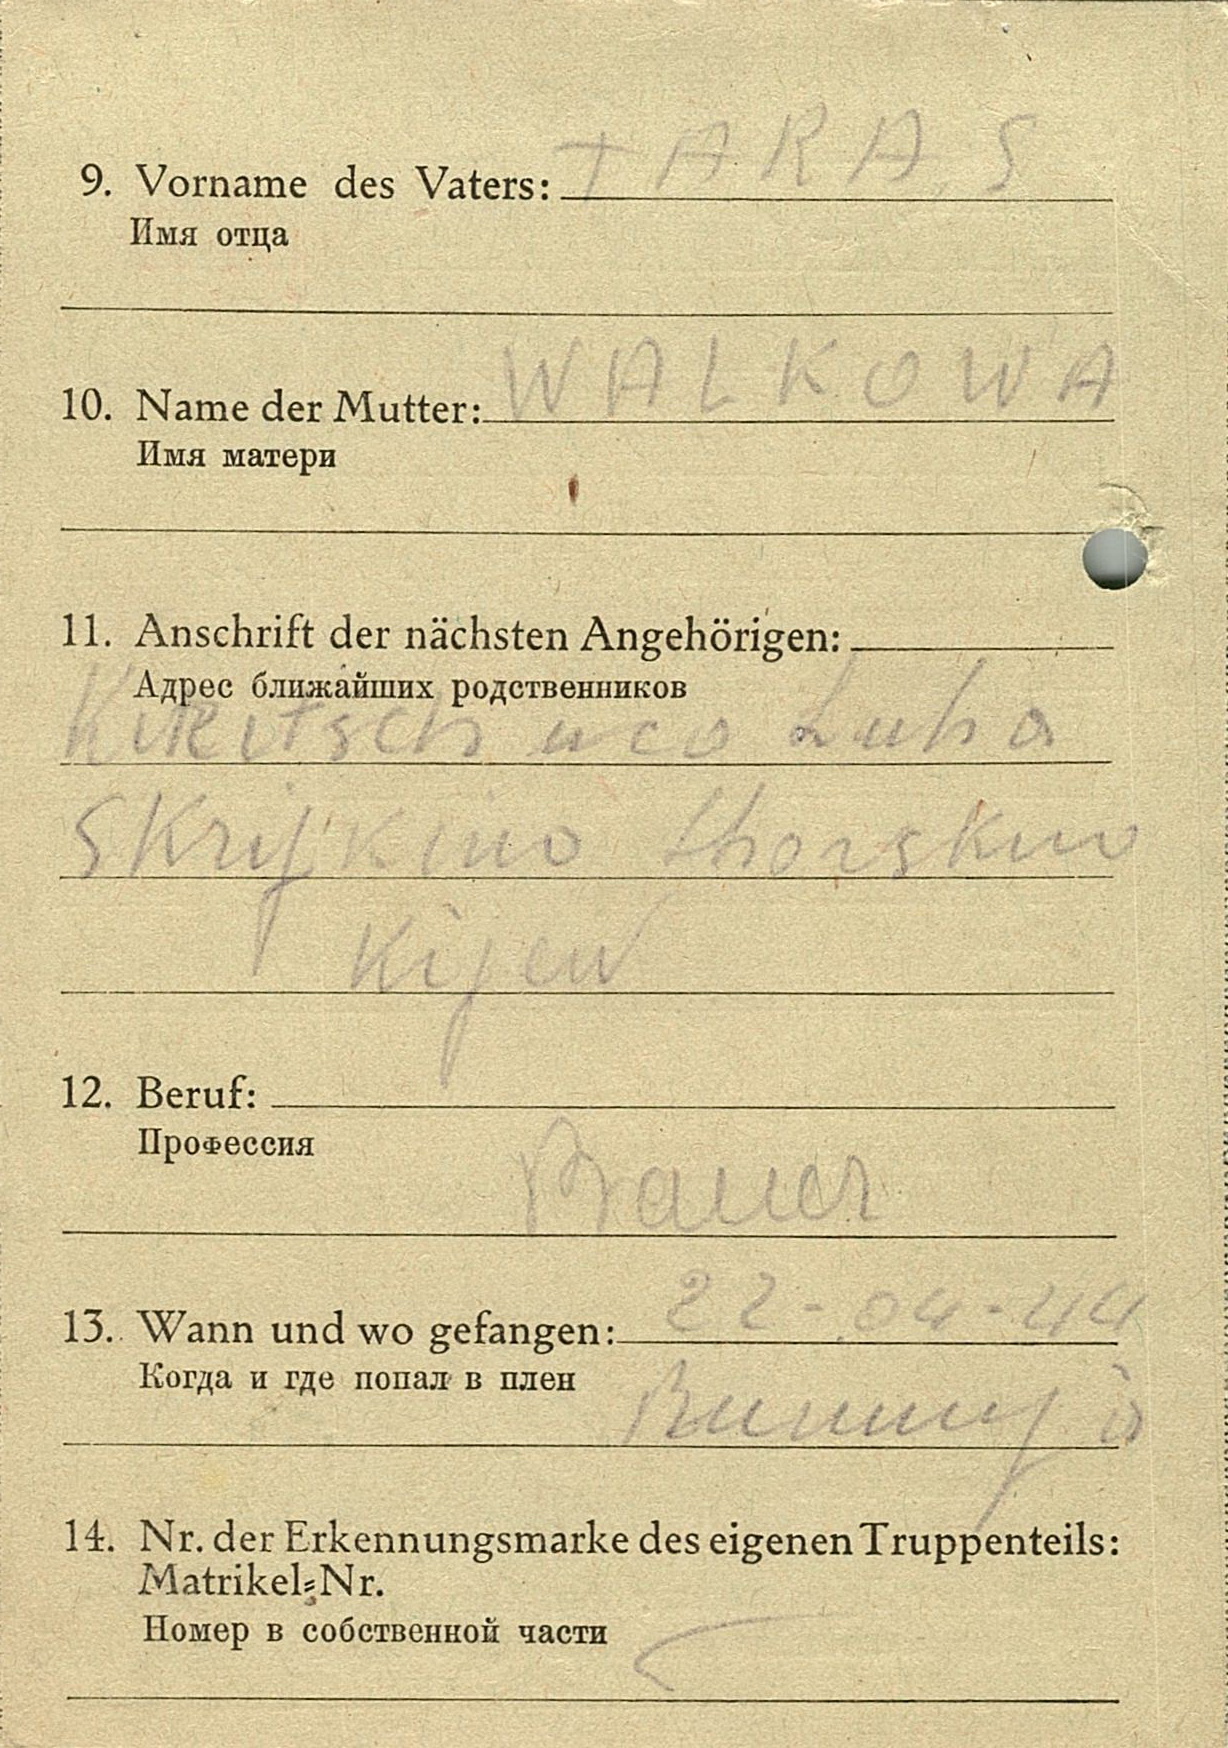 9. Vorname des Vaters: TARAS
Имя отца
10. Name der Mutter: WALKOWA
Имя матери
11. Anschrift der nächsten Angehörigen:
Адрес ближайших родственников
Luha
Kijew
12. Beruf:
Профессия
Bauer
13. Wann und wo gefangen: 22-04-44
Когда и где попал в плен
14. Nr. der Erkennungsmarke des eigenen Truppenteils:
Matrikel-Nr.
Номер в собственной части